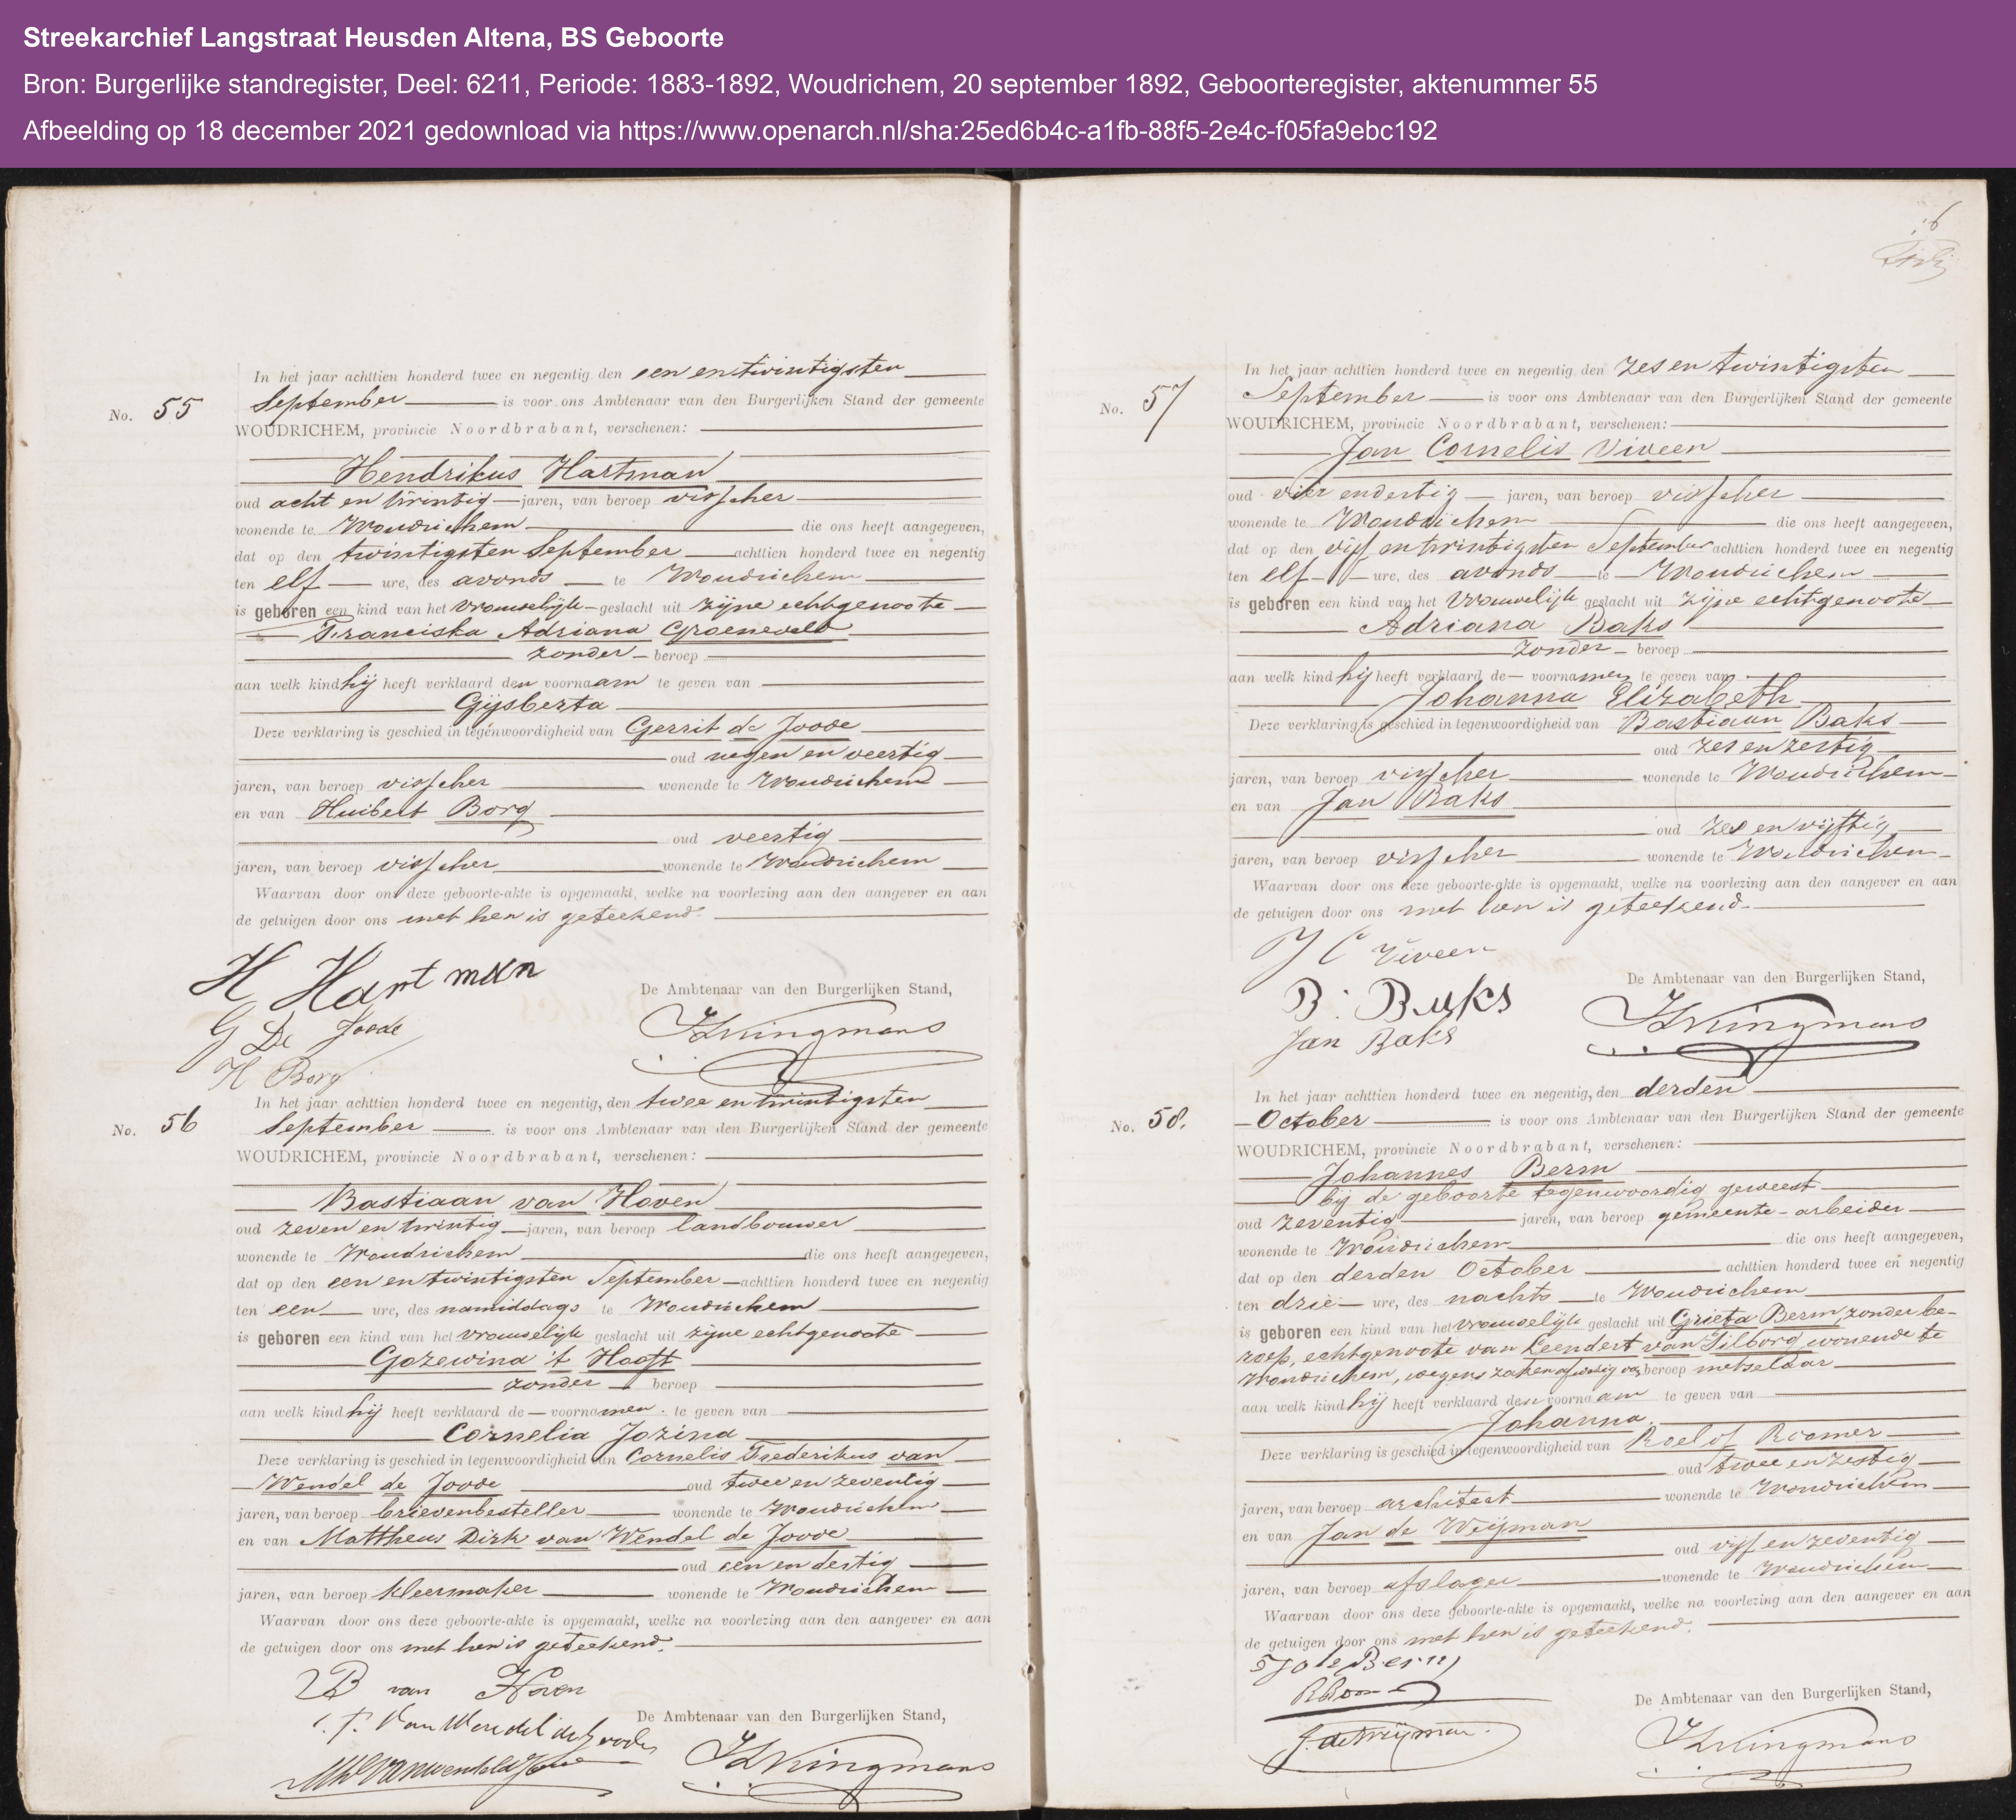 Streekarchief Langstraat Heusden Altena, BS Geboorte
Bron: Burgerlijke standregister, Deel: 6211, Periode: 1883-1892, Woudrichem, 20 september 1892, Geboorteregister, aktenummer 55
Afbeelding op 18 december 2021 gedownload via https://www.openarch.nl/sha:25ed6b4c-a1fb-88f5-2e4c-f05fa9ebc192
In het jaar achttien honderd twee en negentig den een en twintigsten
No. 55 September is voor ons Ambtenaar van den Burgerlijken Stand der gemeente
WOUDRICHEM, provincie Noordbrabant, verschenen:
Hendrikus Hartman
oud acht en twintig jaren, van beroep visscher
wonende te Woudrichem die ons heeft aangegeven,
dat op den twintigsten September achttien honderd twee en negentig
ten elf ure, des avonds te Woudrichem
is geboren een kind van het vrouwelijk geslacht uit zijne echtgenoote
Franciska Adriana Groeneveld
zonder beroep
aan welk kind hij heeft verklaard den voornaam te geven van
Gijsberta
Deze verklaring is geschied in tegenwoordigheid van Gerrit de Joode
oud negen en veertig
jaren, van beroep visscher wonende te Woudrichem
en van Huibert Borg
oud veertig
jaren, van beroep visscher wonende te Woudrichem
Waarvan door ons deze geboorte-akte is opgemaakt, welke na voorlezing aan den aangever en aan
de getuigen door ons met hen is geteekend.
H Hartman
De Ambtenaar van den Burgerlijken Stand,
G De Joode
H Borg
In het jaar achttien honderd twee en negentig, den twee en twintigsten
No. 56 September is voor ons Ambtenaar van den Burgerlijken Stand der gemeente
WOUDRICHEM, provincie Noordbrabant, verschenen:
Bastiaan van Hoven
oud zeven en twintig jaren, van beroep landbouwer
wonende te Woudrichem die ons heeft aangegeven,
dat op den een en twintigsten September achttien honderd twee en negentig
ten een ure, des namiddags te Woudrichem
is geboren een kind van het vrouwelijk geslacht uit zijne echtgenoote
Gozewina 't Hooft
zonder beroep
aan welk kind hij heeft verklaard de voornamen te geven van
Cornelia Jozina
Deze verklaring is geschied in tegenwoordigheid van Cornelis Frederikus van
Wendel de Joode oud twee en zeventig
jaren, van beroep brievenbesteller wonende te Woudrichem
en van Mattheus Dirk van Wendel de Joode
oud een en dertig
jaren, van beroep kleermaker wonende te Woudrichem
Waarvan door ons deze geboorte-akte is opgemaakt, welke na voorlezing aan den aangever en aan
de getuigen door ons met hen is geteekend.
B van Hoven
Van Wendel de Joode
De Ambtenaar van den Burgerlijken Stand,
In het jaar achttien honderd twee en negentig den zes en twintigsten
No. 57 September is voor ons Ambtenaar van den Burgerlijken Stand der gemeente
WOUDRICHEM, provincie Noordbrabant, verschenen:
Jan Cornelis Viveen
oud vier en dertig jaren, van beroep visscher
wonende te Woudrichem die ons heeft aangegeven,
dat op den vijf en twintigsten September achttien honderd twee en negentig
ten elf ure, des avonds te Woudrichem
is geboren een kind van het vrouwelijk geslacht uit zijne echtgenoote
Adriana Baks
zonder beroep
aan welk kind hij heeft verklaard de voornamen te geven van
Johanna Elizabeth
Deze verklaring is geschied in tegenwoordigheid van Bastiaan Baks
oud zes en zestig
jaren, van beroep visscher wonende te Woudrichem
en van Jan Baks
oud zes en vijftig
jaren, van beroep visscher wonende te Woudrichem
Waarvan door ons deze geboorte-akte is opgemaakt, welke na voorlezing aan den aangever en aan
de getuigen door ons met hen is geteekend.
J C Viveen
De Ambtenaar van den Burgerlijken Stand,
B. Baks
Jan Baks
In het jaar achttien honderd twee en negentig, den derden
No. 58. October is voor ons Ambtenaar van den Burgerlijken Stand der gemeente
WOUDRICHEM, provincie Noordbrabant, verschenen:
Johannes Berm
bij de geboorte tegenwoordig geweest
oud zeventig jaren, van beroep gemeente-arbeider
wonende te Woudrichem die ons heeft aangegeven,
dat op den derden October achttien honderd twee en negentig
ten drie ure, des nachts te Woudrichem
is geboren een kind van het vrouwelijk geslacht uit Grieta Berm, zonder be-
roep, echtgenoote van Leendert van Tilborg, wonende te
Woudrichem, wegens zaken afwezig van beroep metselaar
aan welk kind hij heeft verklaard den voornaam te geven van
Johanna.
Deze verklaring is geschied in tegenwoordigheid van Roelof Roomer
oud twee en zestig
jaren, van beroep architect wonende te Woudrichem
en van Jan de Weijman
oud vijf en zeventig
jaren, van beroep afslager wonende te Woudrichem
Waarvan door ons deze geboorte-akte is opgemaakt, welke na voorlezing aan den aangever en aan
de getuigen door ons met hen is geteekend.
Joh Berm
De Ambtenaar van den Burgerlijken Stand,
J. de Weijman.